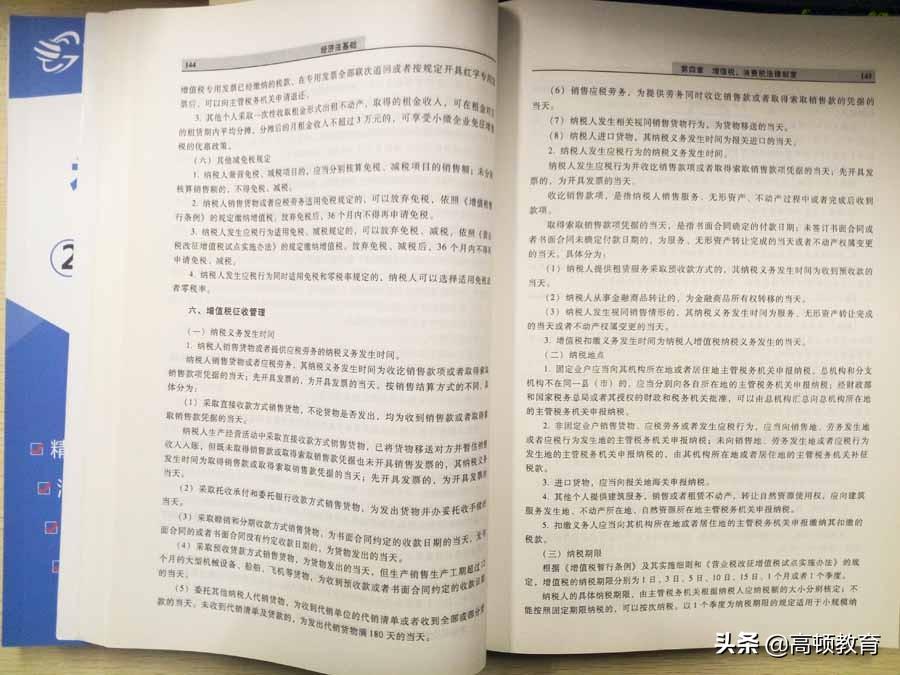 144
经济法基础
增值税专用发票已经缴纳的税款，在专用发票全部联次追回或者按规定开具红字专用发
票后，可以向主管税务机关申请退还。
3. 其他个人采取一次性收取租金形式出租不动产，取得的租金收入，可在租金对应
的租赁期内平均分摊，分摊后的月租金收入不超过3万元的，可享受小微企业免征增值
税的优惠政策。
（六）其他减免税规定
1. 纳税人兼营免税、减税项目的，应当分别核算免税、减税项目的销售额；未分别
核算销售额的，不得免税、减税。
2. 纳税人销售货物或者应税劳务适用免税规定的，可以放弃免税，依照《增值税暂
行条例》的规定缴纳增值税。放弃免税后，36个月内不得再申请免税。
3. 纳税人发生应税行为适用免税、减税规定的，可以放弃免税、减税，依照《营业
税改征增值税试点实施办法》的规定缴纳增值税。放弃免税、减税后，36个月内不得再
申请免税、减税。
4. 纳税人发生应税行为同时适用免税和零税率规定的，纳税人可以选择适用免税或
者零税率。
六、增值税征收管理
（一）纳税义务发生时间
1. 纳税人销售货物或者提供应税劳务的纳税义务发生时间。
纳税人销售货物或者应税劳务，其纳税义务发生时间为收讫销售款或者取得索取
销售款项凭据的当天；先开具发票的，为开具发票的当天。按销售结算方式的不同，具
体分为：
（1）采取直接收款方式销售货物，不论货物是否发出，均为收到销售款或者取得索
取销售款凭据的当天。
纳税人生产经营活动中采取直接收款方式销售货物，已将货物移送对方并暂估销售
收入入账，但既未取得销售款或取得索取销售款凭据也未开具销售发票的，其纳税义务
发生时间为取得销售款或取得索取销售款凭据的当天；先开具发票的，为开具发票的
当天。
（2）采取托收承付和委托银行收款方式销售货物，为发出货物并办妥托收手续的
当天。
（3）采取赊销和分期收款方式销售货物，为书面合同约定的收款日期的当天，无书
面合同的或者书面合同没有约定收款日期的，为货物发出的当天。
（4）采取预收货款方式销售货物，为货物发出的当天，但生产销售生产工期超过12
个月的大型机械设备、船舶、飞机等货物，为收到预收款或者书面合同约定的收款日期
的当天。
（5）委托其他纳税人代销货物，为收到代销单位的代销清单或者收到全部或部分货
款的当天。未收到代销清单及货款的，为发出代销货物满180天的当天。
第四章 增值税、消费税法律制度
145
（6）销售应税劳务，为提供劳务同时收讫销售款或者取得索取销售款的凭据的
当天。
（7）纳税人发生相关视同销售货物行为，为货物移送的当天。
（8）纳税人进口货物，其纳税义务发生时间为报关进口的当天。
2. 纳税人发生应税行为的纳税义务发生时间。
纳税人发生应税行为并收讫销售款项或者取得索取销售款项凭据的当天；先开具发
票的，为开具发票的当天。
收讫销售款项，是指纳税人销售服务、无形资产、不动产过程中或者完成后收到
款项。
取得索取销售款项凭据的当天，是指书面合同确定的付款日期；未签订书面合同或
者书面合同未确定付款日期的，为服务、无形资产转让完成的当天或者不动产权属变更
的当天。具体分为：
（1）纳税人提供租赁服务采取预收款方式的，其纳税义务发生时间为收到预收款的
当天。
（2）纳税人从事金融商品转让的，为金融商品所有权转移的当天。
（3）纳税人发生视同销售情形的，其纳税义务发生时间为服务、无形资产转让完成
的当天或者不动产权属变更的当天。
3. 增值税扣缴义务发生时间为纳税人增值税纳税义务发生的当天。
（二）纳税地点
1. 固定业户应当向其机构所在地或者居住地主管税务机关申报纳税。总机构和分支
机构不在同一县（市）的，应当分别向各自所在地的主管税务机关申报纳税；经财政部
和国家税务总局或者其授权的财政和税务机关批准，可以由总机构汇总向总机构所在地
的主管税务机关申报纳税。
2. 非固定业户销售货物、应税劳务或者发生应税行为，应当向销售地、劳务发生地
或者应税行为发生地的主管税务机关申报纳税；未向销售地、劳务发生地或者应税行为
发生地的主管税务机关申报纳税的，由其机构所在地或者居住地的主管税务机关补征
税款。
3. 进口货物，应当向报关地海关申报纳税。
4. 其他个人提供建筑服务，销售或者租赁不动产，转让自然资源使用权，应向建筑
服务发生地、不动产所在地、自然资源所在地主管税务机关申报纳税。
5. 扣缴义务人应当向其机构所在地或者居住地的主管税务机关申报缴纳其扣缴的
税款。
（三）纳税期限
根据《增值税暂行条例》及其实施细则和《营业税改征增值税试点实施办法》的规
定，增值税的纳税期限分别为1日、3日、5日、10日、15日、1个月或者1个季度。
纳税人的具体纳税期限，由主管税务机关根据纳税人应纳税额的大小分别核定；不
能按照固定期限纳税的，可以按次纳税。以1个季度为纳税期限的规定适用于小规模纳
2
精
头条 @高顿教育